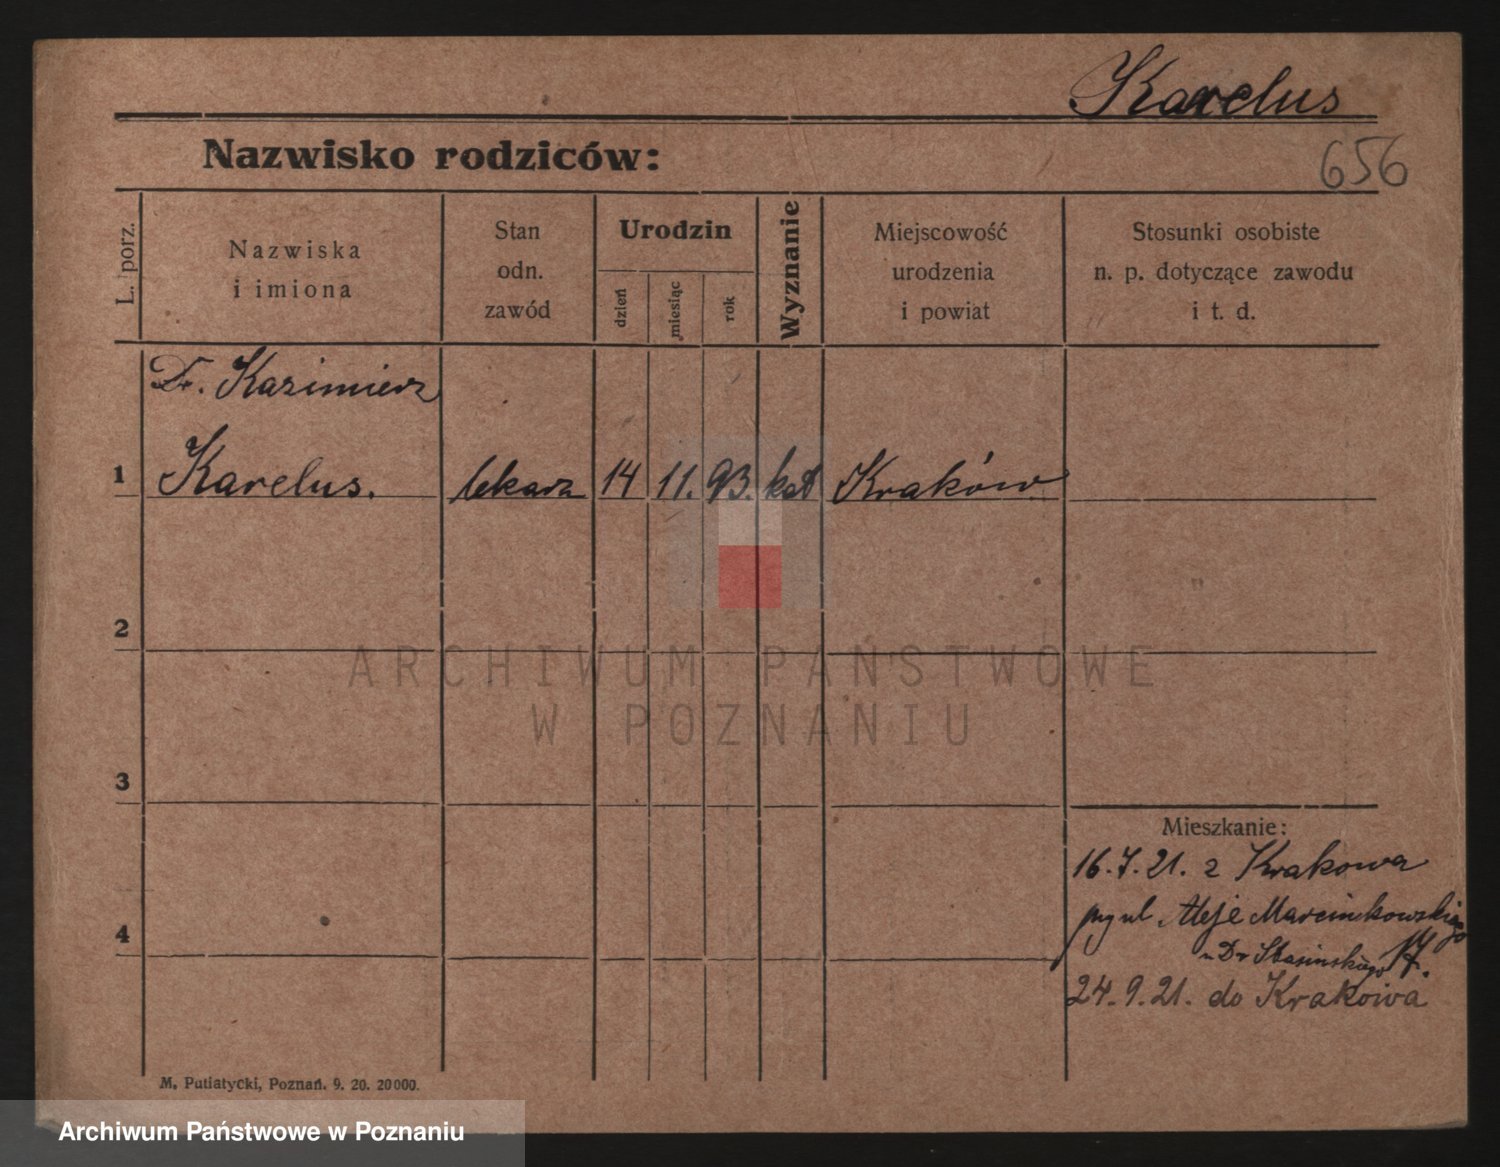 Karelus
Nazwisko rodziców:
656
L. porz.
Nazwiska
i imiona
Stan
odn.
zawód
Urodzin
dzień
miesiąc
rok
Wyznanie
Miejscowość
urodzenia
i powiat
Stosunki osobiste
n. p. dotyczące zawodu
i t. d.
Dr. Kazimierz
1 Karelus. lekarz 14 11. 93. kat Kraków
2
3
4
ARCHIWUM PAŃSTWOWE
W POZNANIU
Mieszkanie:
16.7.21. z Krakowa
Aleje Marcinkowskiego
u Dr Stasińskiego 17.
24.9.21. do Krakowa
M. Putiatycki, Poznań. 9. 20. 20000.
Archiwum Państwowe w Poznaniu